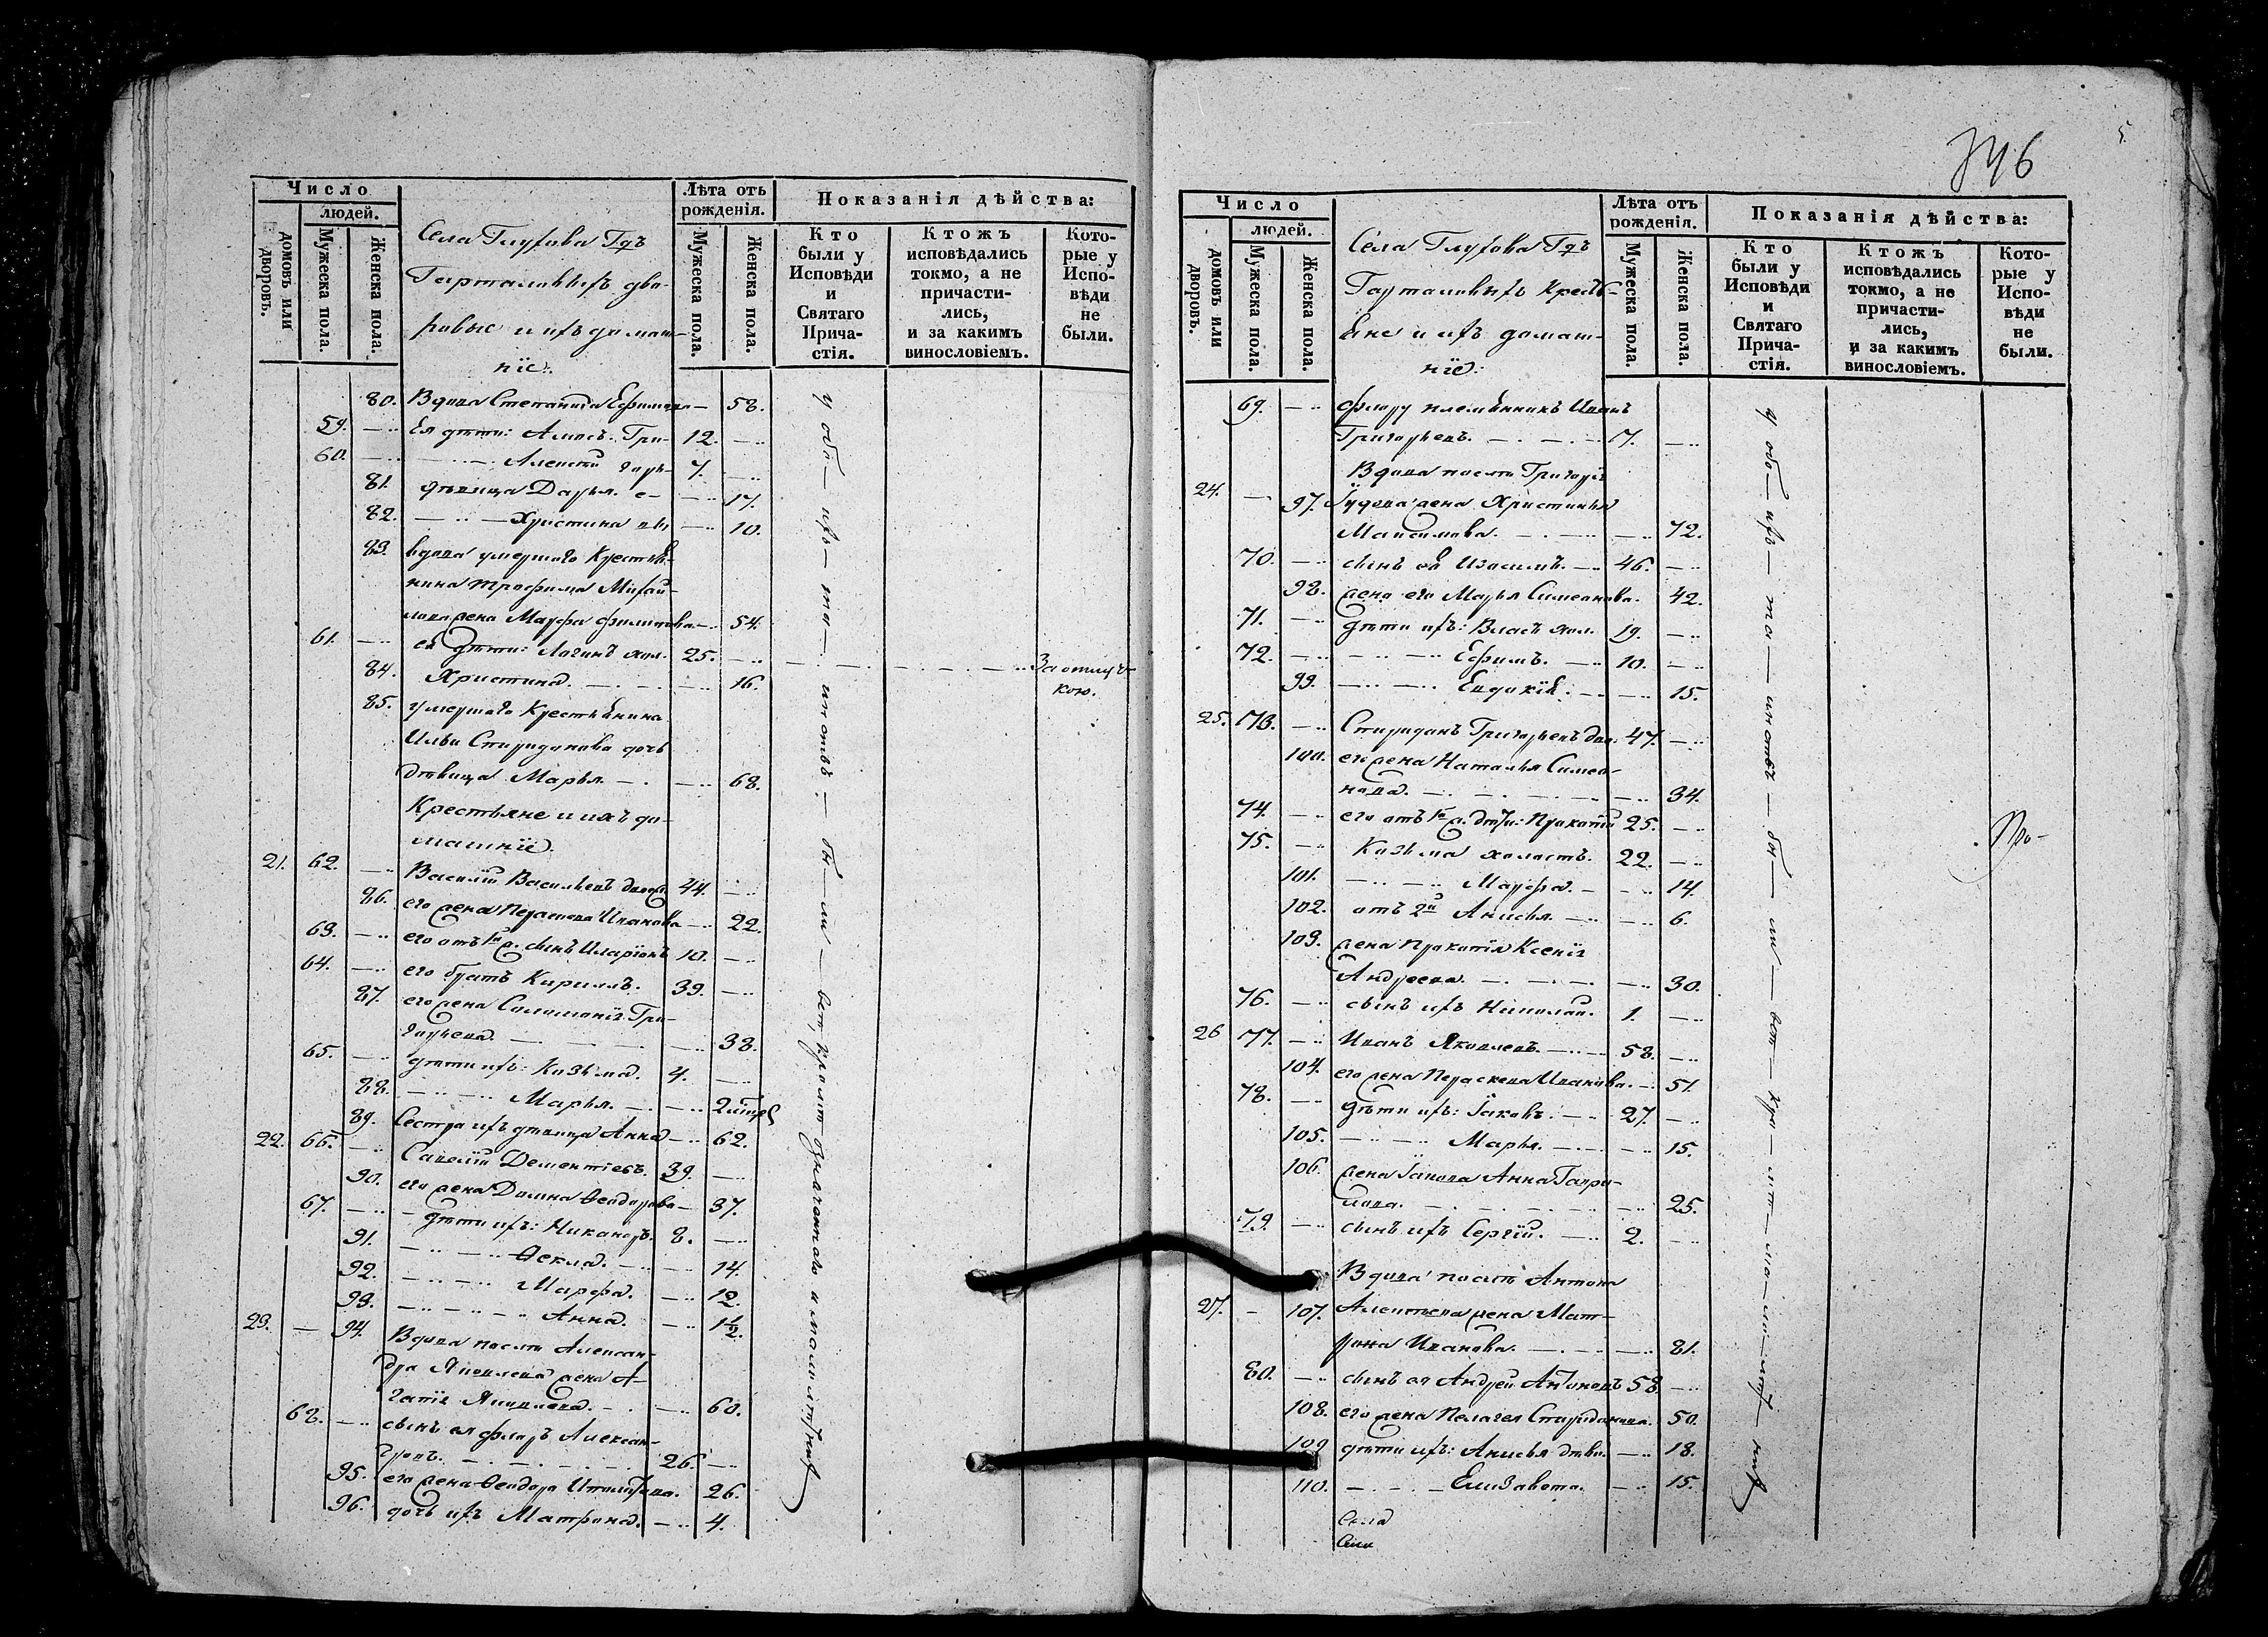 Число
людей.
домовъ или дворовъ.
Мужеска пола.
Женска пола.
Села Глухова Гдъ
Гарталовыхъ дво-
ровые и ихъ домаш-
нїе.
Лѣта отъ рожденія.
Мужеска пола.
Женска пола.
Показанія дѣйства:
Кто были у Исповѣди и Святаго Прича- стія.
Ктожъ исповѣдались токмо, а не причасти- лись, и за какимъ винословіемъ.
Кото- рые у Испо- вѣди не были.
80. Вдова Степанида Ефимова — 58.
59. — Ея дѣти: Амосъ Гри- 12. —
60. — Алексѣй горь- 7. —
81. дѣвица Дарья е- — 17.
82. — Христина вы — 10.
83. вдова умершаго Крестья-
нина Трофима Михай-
лова жена Марфа Филипова — 54.
61. — ея дѣти: Логинъ хол. 25. — Заотлуч-
кою.
84. Христина. — 16.
85. умершаго Крестьянина
Ильи Спиридонова дочь
дѣвица Марья. — 68.
Крестьяне и ихъ до-
машнїе.
21. 62. — Василїй Васильевъ вдов. 44. —
86. его жена Парасковa Иванова — 22.
63. — его отъ 1й ж. сынъ Иларїонъ 10. —
64. — его братъ Кириллъ. 39. —
87. его жена Соломонїя Гри-
горьева. — 38.
65. — дѣти ихъ: Козьма. 4. —
88. — Марья. — 2
89. Сестра ихъ дѣвица Анна — 62.
22. 66. — Савелїй Дементїевъ. 39. —
90. его жена Домна Ѳеодорова — 37.
67. — дѣти ихъ: Никаноръ. 8. —
91. — Ѳекла. — 14.
92. — Марфа. — 12.
93. — Анна. — 1½.
23. — 94. Вдова послѣ Алексан-
дра Яковлева жена А-
гапїя Яковлева. — 60.
68. — сынъ ея Флоръ Алексан-
дровъ. — 26. —
95. его жена Ѳеодора Иполитова. 26.
96. дочь ихъ Матрона. — 4.
у обо — ихъ — то — имѣтѣ: — бы — ли — всѣ, кромѣ означеннаго и малолѣтнихъ
346
5
Число
людей.
домовъ или дворовъ.
Мужеска пола.
Женска пола.
Села Глухова Гдъ
Гарталовыхъ Кресть-
яне и ихъ домаш-
нїе.
Лѣта отъ рожденія.
Мужеска пола.
Женска пола.
Показанія дѣйства:
Кто были у Исповѣди и Святаго Прича- стія.
Ктожъ исповѣдались токмо, а не причасти- лись, и за какимъ винословіемъ.
Кото- рые у Испо- вѣди не были.
69. — Флору племянникъ Иванъ
Григорьевъ. — 17. —
Вдова послѣ Григорїя
24. — 97. Гудева жена Христинья
Максимова. — 72.
70. — сынъ ея Изосимъ. — 46. —
98. жена его Марья Симеонова. 42.
71. — дѣти ихъ: Власъ хол. 19. —
72. — Ефимъ. — 10. —
99. — Евдокїя. — 15.
25. 73. — Спиридонъ Григорьевъ вдв. 47. —
100. его жена Наталья Симео-
нова. — 34.
74. — его отъ 1й ж. дѣти: Прокопїй 25. —
75. — Козьма холостъ. 22. —
101. — Марфа. — 14.
102. отъ 2й Анисья. — 6.
103. жена Прокопїя Ксенїя
Андреева. — 30.
76. — сынъ ихъ Николай. 1. —
26 77. — Иванъ Яковлевъ. — 58. —
104. его жена Параскева Иванова. — 51.
78. — дѣти ихъ: Їаковъ. — 27. —
105. — Марья. — 15.
106. жена Їакова Анна Гаври-
лова. — 25.
79. — сынъ ихъ Сергїй. — 2. —
Вдова послѣ Антона
27. — 107. Алексѣева жена Мат-
рона Иванова. — 81.
80. — сынъ ея Андрей Антоновъ 58 —
108. его жена Пелагея Спиридонова. 50.
109 дѣти ихъ: Анисья дѣви. — 18.
110. — Елизавета. — 15.
Села
Про-